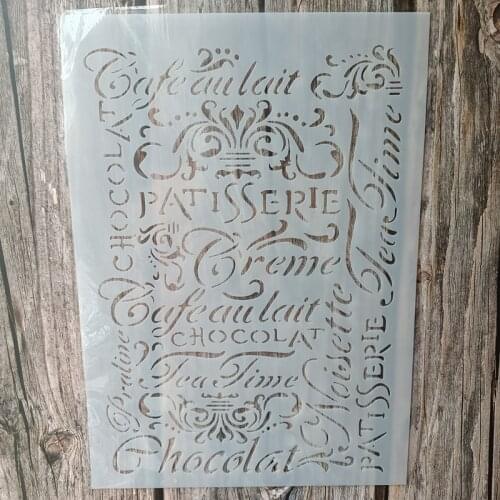 Café au lait
CHOCOLAT
PATISSERIE
Tea Time
Creme
Café au lait
CHOCOLAT
Praline
Tea Time
Noisette
PATISSERIE
Chocolat